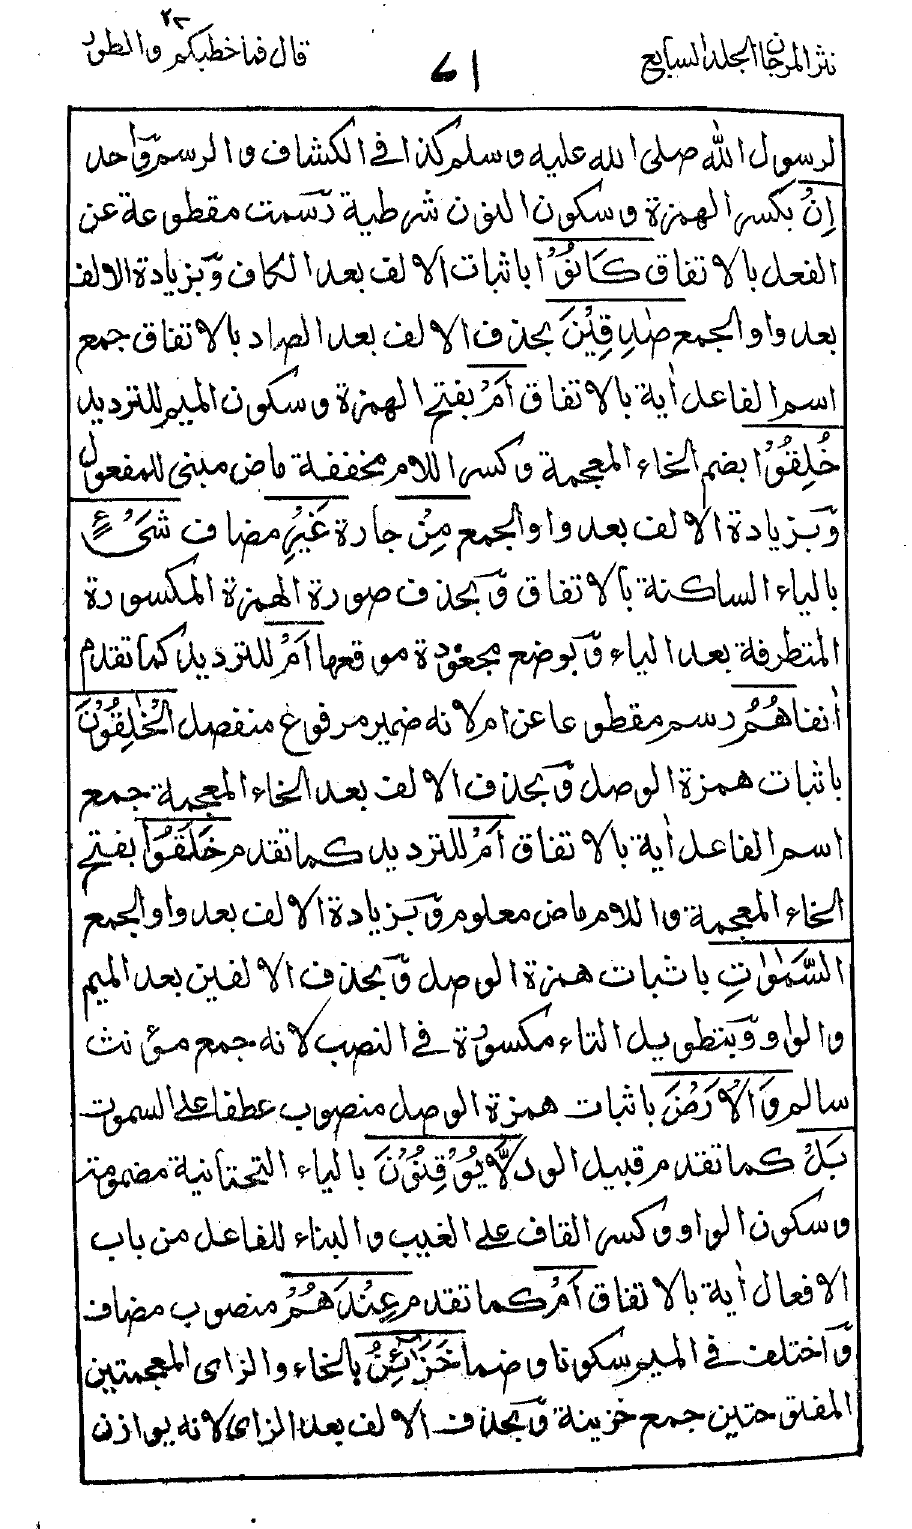 نثر المرجان الجلد السابع
٧١
قال فما خطبكم ٢٧ والطور
لرسول الله صلى الله عليه وسلم كذا فى الكشاف والرسم واحد
اِنْ بكسر الهمزة وسكون النون شرطية رسمت مقطوعة عن
الفعل بالاتفاق كَانُوْا باثبات الالف بعد الكاف وبزيادة الالف
بعد واو الجمع صٰدِقِيْنَ بحذف الالف بعد الصاد بالاتفاق جمع
اسم الفاعل اٰية بالاتفاق اَمْ بفتح الهمزة وسكون الميم للترديد
خُلِقُوْا بضم الخاء المعجمة وكسر اللام مخففة ماض مبنى للمفعول
وبزيادة الالف بعد واو الجمع مِنْ جارة غَيْرِ مضاف شَىْءٍ
بالياء الساكنة بالاتفاق وبحذف صورة الهمزة المكسورة
المتطرفة بعد الياء وبوضع مجعودة موقعها اَمْ للترديد كما تقدم
اٰنفا هُمُ رسم مقطوعا عن ام لانه ضمير مرفوع منفصل الْخٰلِقُوْنَ
باثبات همزة الوصل وبحذف الالف بعد الخاء المعجمة جمع
اسم الفاعل اٰية بالاتفاق اَمْ للترديد كما تقدم خَلَقُوا بفتح
الخاء المعجمة واللام ماض معلوم وبزيادة الالف بعد واو الجمع
السَّمٰوٰتِ باثبات همزة الوصل وبحذف الالفين بعد الميم
والواو وبتطويل التاء مكسورة فى النصب لانه جمع مؤنث
سالم وَالْاَرْضَ باثبات همزة الوصل منصوب عطفا على السموت
بَلْ كما تقدم قبيل الورد لَّا يُوْقِنُوْنَ بالياء التحتانية مضمومة
وسكون الواو وكسر القاف على الغيب والبناء للفاعل من باب
الافعال اٰية بالاتفاق اَمْ كما تقدم عِنْدَهُمْ منصوب مضاف
واختلف فى الميم سكونا وضما خَزَآئِنُ بالخاء والزاى المعجمتين
المفتوحتين جمع خزينة وبحذف الالف بعد الزاى لانه يوازن